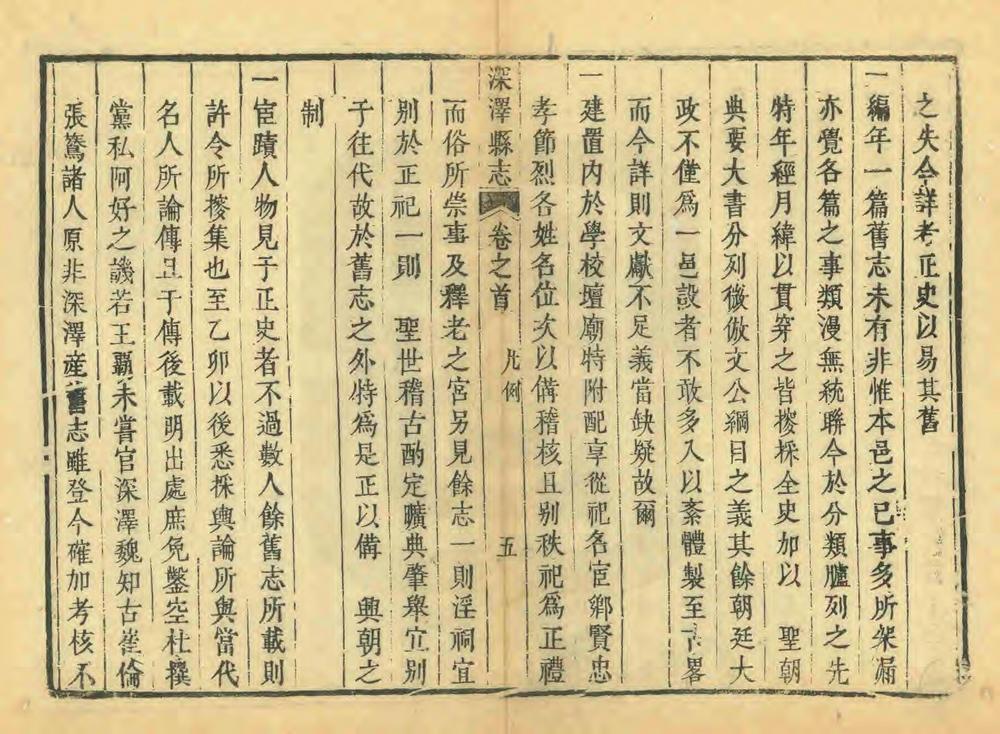 之失今詳考正史以易其舊
一編年一篇舊志未有非惟本邑之已事多所架漏
亦覺各篇之事類漫無統聯今於分類臚列之先
特年經月緯以貫穿之皆摉採全史加以　聖朝
典要大書分列微倣文公綱目之義其餘朝廷大
政不僅爲一邑設者不敢多入以紊體製至古畧
而今詳則文獻不足義當缺疑故爾
一建置内於學校壇廟特附配享從祀名宦鄉賢忠
孝節烈各姓名位次以備稽核且别秩祀爲正禮
深澤縣志　卷之首　凡例　五
而俗所崇事及釋老之宮另見餘志一則淫祠宜
别於正祀一則　聖世稽古酌定曠典肇舉宜别
于往代故於舊志之外特爲是正以備　興朝之
制
一宦蹟人物見于正史者不過數人餘舊志所載則
許令所摉集也至乙卯以後悉採輿論所與當代
名人所論傳且于傳後載明出處庶免鑿空杜撰
黨私阿好之譏若王覇未嘗官深澤魏知古崔倫
張鷟諸人原非深澤産舊志雖登今確加考核不